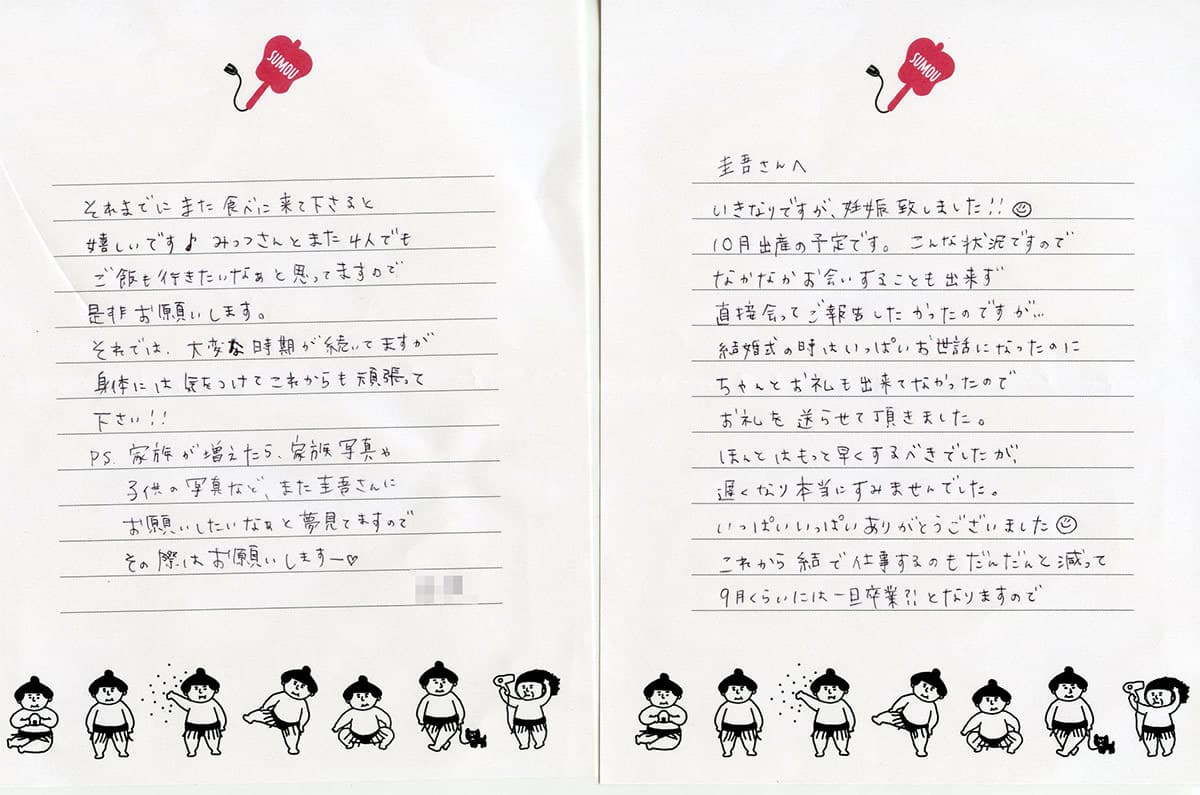 SUMOU
圭吾さんへ
いきなりですが、妊娠致しました!!☺
10月出産の予定です。こんな状況ですので
なかなかお会いすることも出来ず
直接会ってご報告したかったのですが…
結婚式の時はいっぱいお世話になったのに
ちゃんとお礼も出来てなかったので
お礼を送らせて頂きました。
ほんとはもって早くするべきでしたが、
遅くなり本当にすみませんでした。
いっぱいいっぱいありがとうございました☺
これから結で仕事するのもだんだんと減って
9月くらいには一旦卒業?!となりますので
SUMOU
それまでにまた食べに来て下さると
嬉しいです♪みっつさんとまた4人でも
ご飯も行きたいなぁと思ってますので
是非お願いします。
それでは、大変な時期が続いてますが
身体には気をつけてこれからも頑張って
下さい!!
PS.家族が増えたら、家族写真や
子供の写真など、また圭吾さんに
お願いしたいなぁと夢見てますので
その際はお願いしますー♡